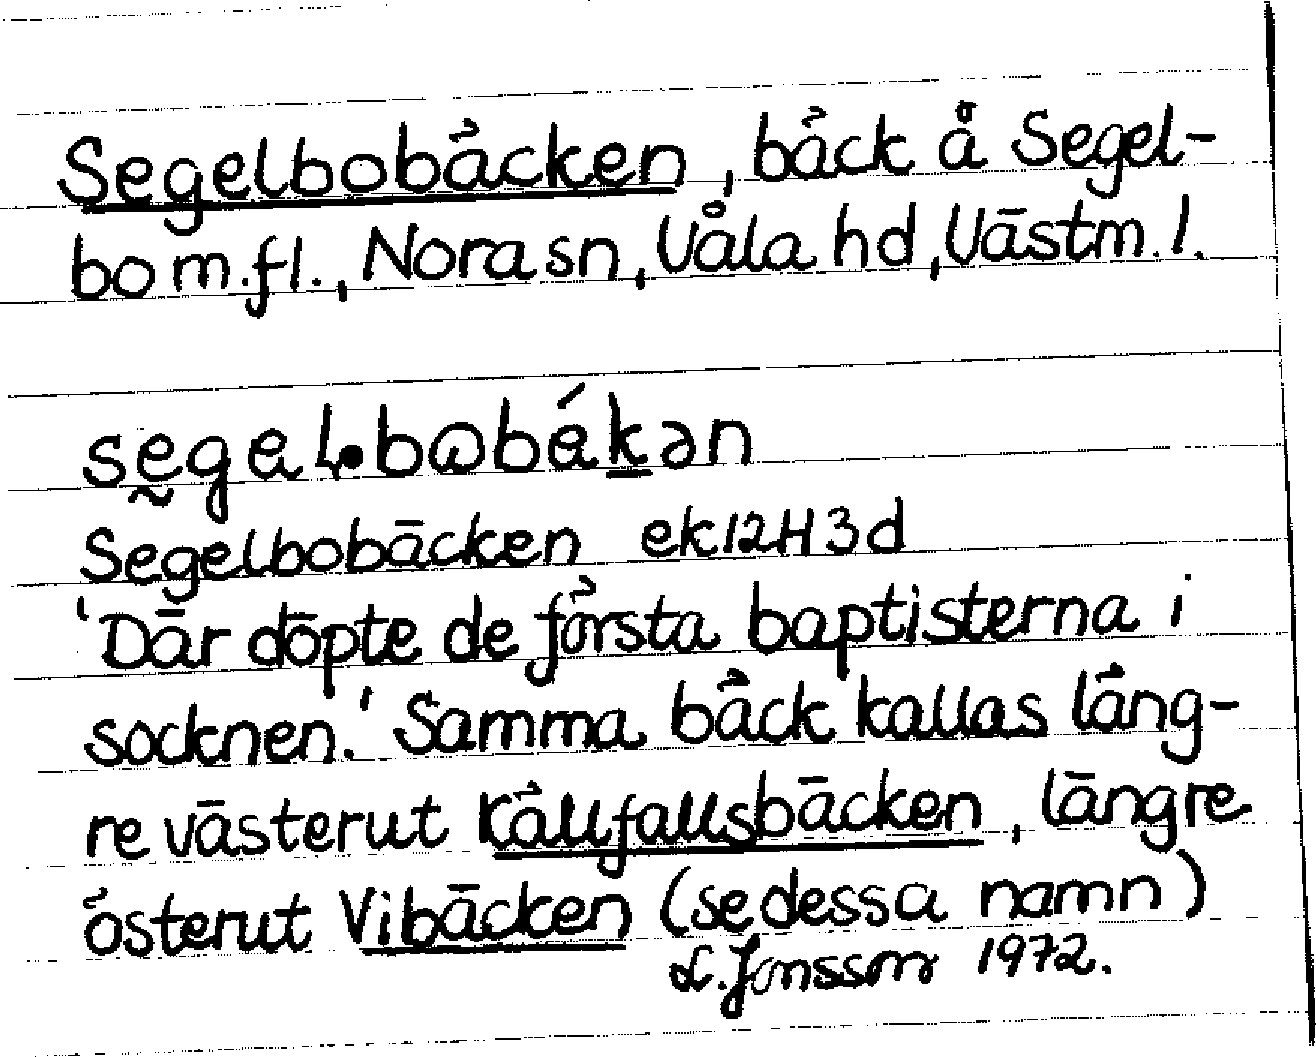 Segelbobäcken, bäck å Segel-
bo m.fl., Nora sn, Våla hd, Västm. l.
Segelbobäcken ek12H3d
'Där döpte de första baptisterna i
socknen.' Samma bäck kallas läng-
re västerut Källfallsbäcken, längre
österut Vibäcken (se dessa namn)
L. Jonsson 1972.